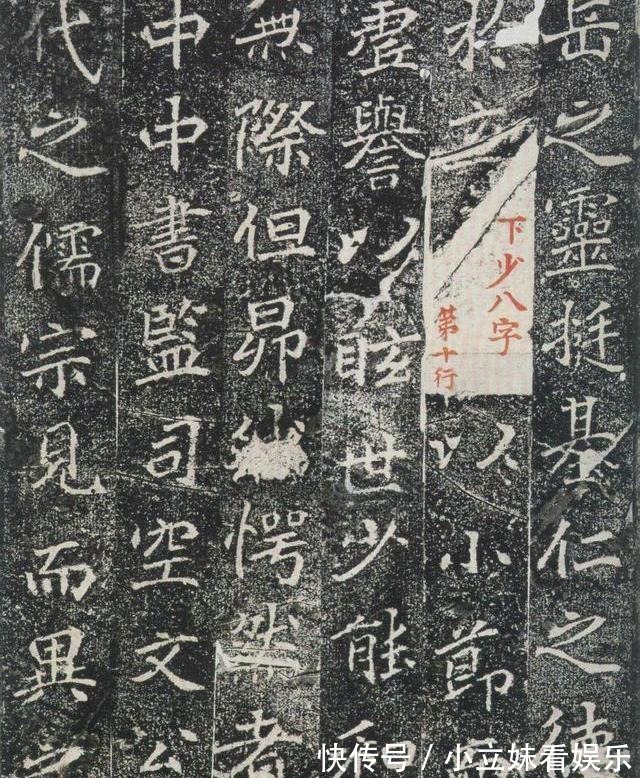 岳之靈挺基仁之德
於
下少八字
第十行
以小節
虛譽以眩世少能
無際但昂愕然者
中中書監司空文公
代之儒宗見而異之
快传号/小立妹看娱乐